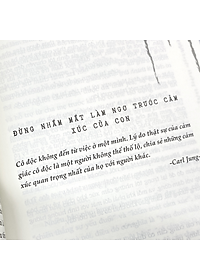 ĐỪNG NHẮM MẮT LÀM NGƠ TRƯỚC CẢM
XÚC CỦA CON
Cô độc không đến từ việc ở một mình. Lý do thật sự của cảm
giác cô độc là một người không thể thổ lộ, chia sẻ những cảm
xúc quan trọng nhất của họ với người khác.
-Carl Jung-